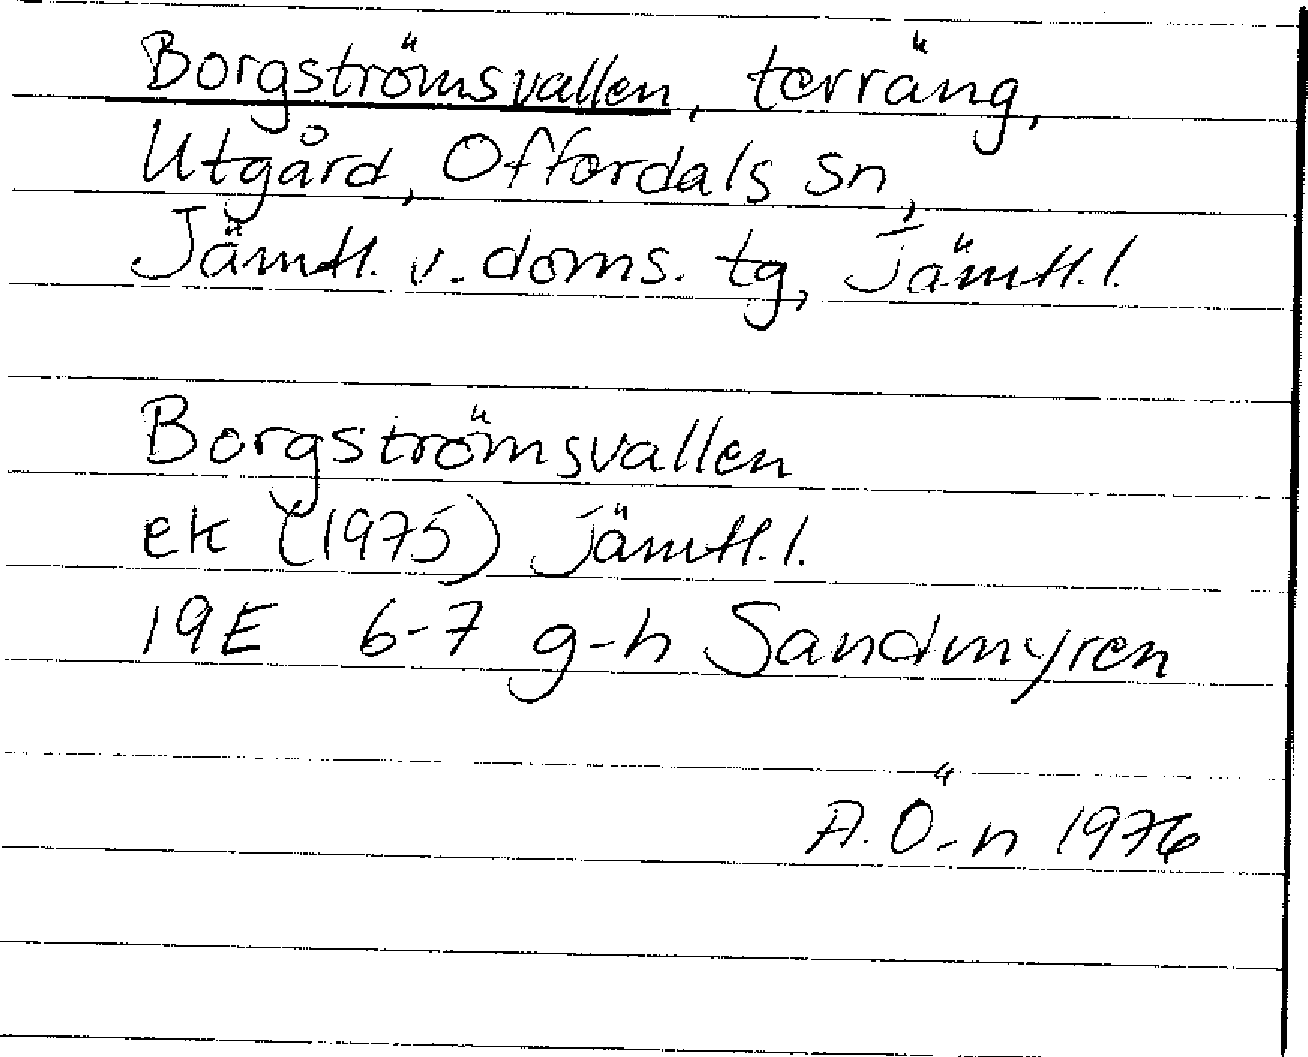 Borgströmsvallen, terräng,
Utgård, Offerdals sn,
Jämtl. v. doms. tg, Jämtl. l.
Borgströmsvallen
ek (1975) Jämtl. l.
19E 6-7 g-h Sandmyren
A. Ö-n 1976